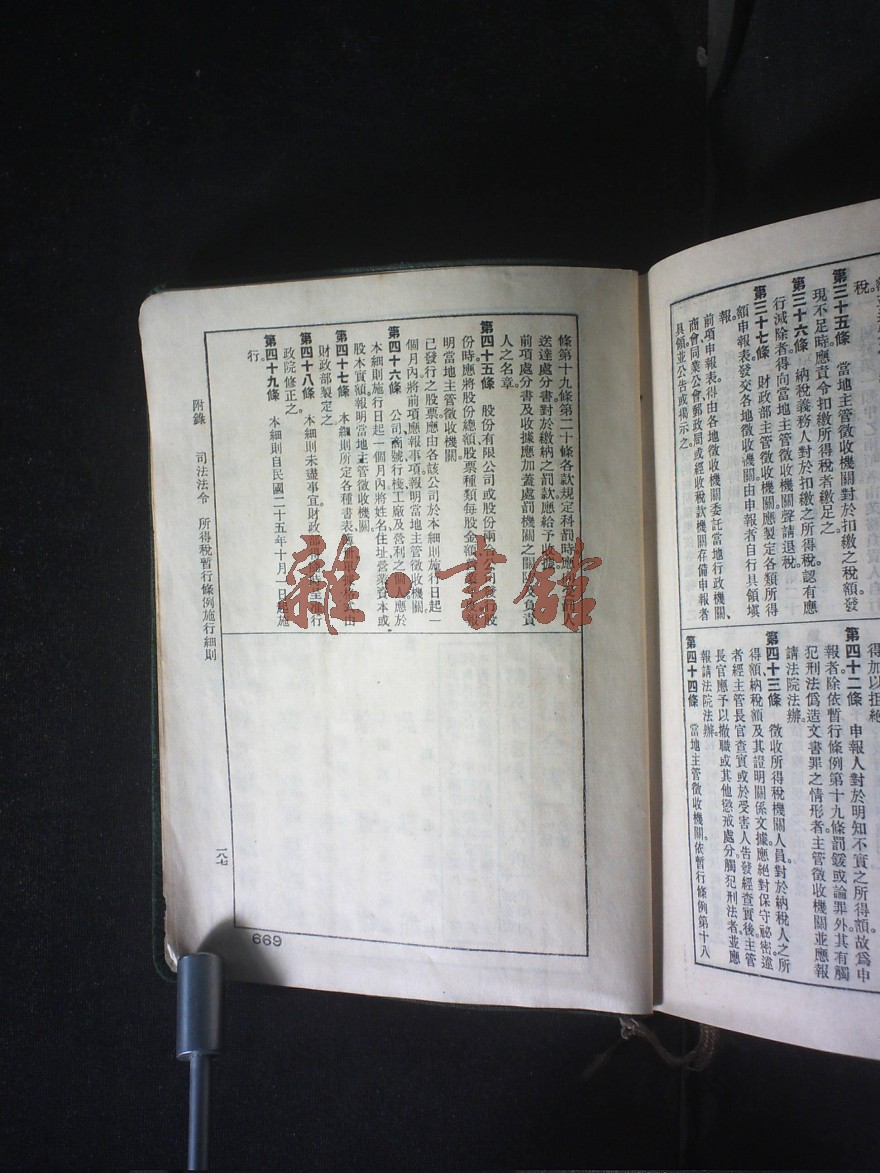 稅。
第三十五條　當地主管徵收機關對於扣繳之稅額發
現不足時應責令扣繳所得稅者繳足之。
第三十六條　納稅義務人對於扣繳之所得稅認有應
行減除者得向當地主管徵收機關聲請退稅。
第三十七條　財政部主管徵收機關應製定各類所得
額申報表發交各地徵收機關由申報者自行具領塡
報。
前項申報表得由各地徵收機關委託當地行政機關、
商會同業公會郵政局或經收稅款機關存備申報者
具領並公告或揭示之。
得加以拒絕
第四十二條　申報人對於明知不實之所得額故爲申
報者除依暫行條例第十九條罰鍰或論罪外其有觸
犯刑法僞造文書罪之情形者主管徵收機關並應報
請法院法辦。
第四十三條　徵收所得稅機關人員對於納稅人之所
得額納稅額及其證明關係文據應絕對保守祕密違
者經主管長官查實或於受害人告發經查實後主管
長官應予以撤職或其他懲戒處分觸犯刑法者並應
報請法院法辦。
第四十四條　當地主管徵收機關依暫行條例第十八
條第十九條第二十條各款規定科罰時應
人
送達處分書對於繳納之罰款應給予收據
前項處分書及收據應加蓋處罰機關之關
負責
人之名章。
第四十五條　股份有限公司或股份兩
份時應將股份總額股票種類每股金額
明當地主管徵收機關。
已發行之股票應由各該公司於本細則施行日起一
個月內將前項應報事項報明當地主管徵收機關。
第四十六條　公司、商號行棧工廠及營利之個人應於
本細則施行日起一個月內將姓名住址營業資本或
股本實額報明當地主管徵收機關。
第四十七條　本細則所定各種書表
由
財政部製定之
第四十八條　本細則未盡事宜財政部得
行
政院修正之。
第四十九條　本細則自民國二十五年十月一日起施
行。
附錄　司法法令　所得稅暫行條例施行細則
一八七
669
雜·書館